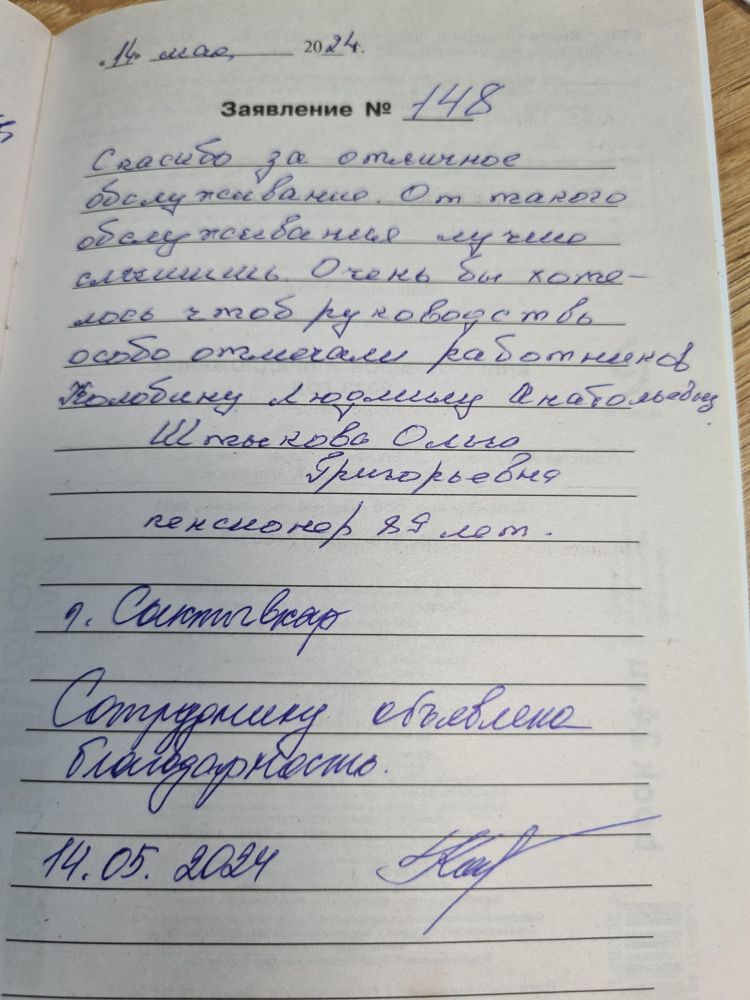 "14" мая 2024г.
Заявление № 148
Спасибо за отличное
обслуживание. От такого
обслуживания лучше
слышишь. Очень бы хоте-
лось чтоб руководствь
особо отмечали работников
Колобину Людмилу Анатольевну
Штыкова Ольга
Григорьевна
пенсионер 89 лет.
г. Сыктывкар
Сотруднику объявлена
благодарность.
14.05.2024